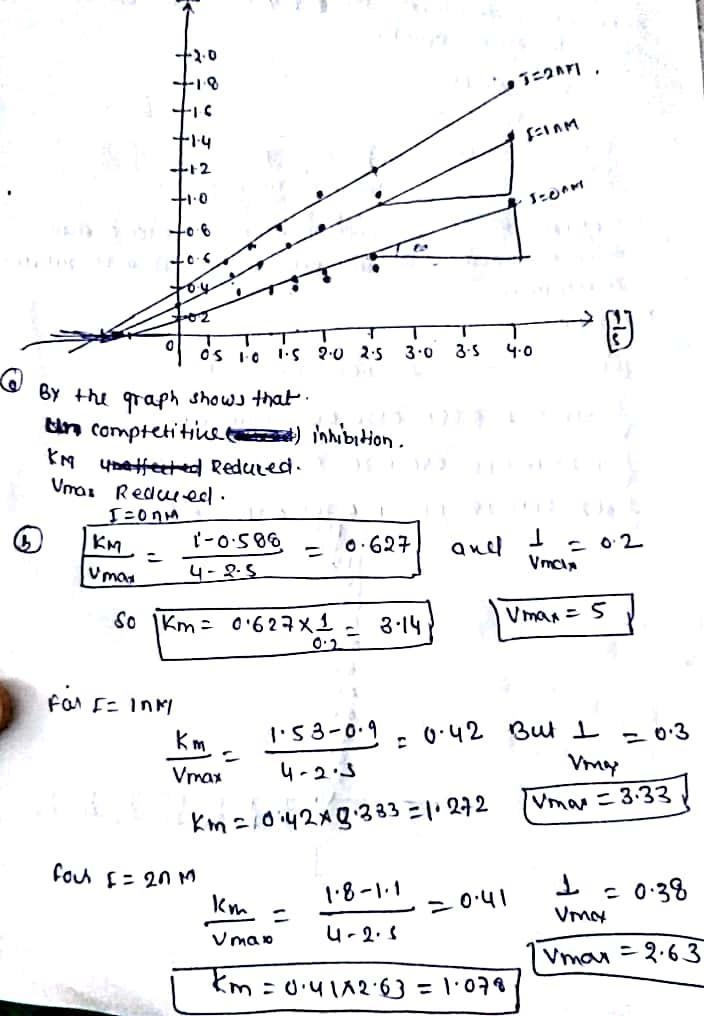 2.0
1.8
I=2nM
1.6
I=1nM
1.4
1.2
1.0
I=0nM
0.8
0.6
0.4
0.2
[1/s]
0 0.5 1.0 1.5 2.0 2.5 3.0 3.5 4.0
(a) By the graph shows that.
competitive inhibition.
KM unaffected Reduced.
Vmax Reduced.
I=0nM
(b) KM/Vmax = 1-0.588/4-2.5 = 0.627 and 1/Vmax = 0.2
So Km = 0.627 x 1/0.2 = 3.14 Vmax = 5
For I = 1nM
Km/Vmax = 1.53-0.9/4-2.5 = 0.42 But 1/Vmax = 0.3
Km = 0.42 x 3.333 = 1.272 Vmax = 3.33
for I = 2nM
Km/Vmax = 1.8-1.1/4-2.5 = 0.41 1/Vmax = 0.38
Vmax = 2.63
Km = 0.41 x 2.63 = 1.078